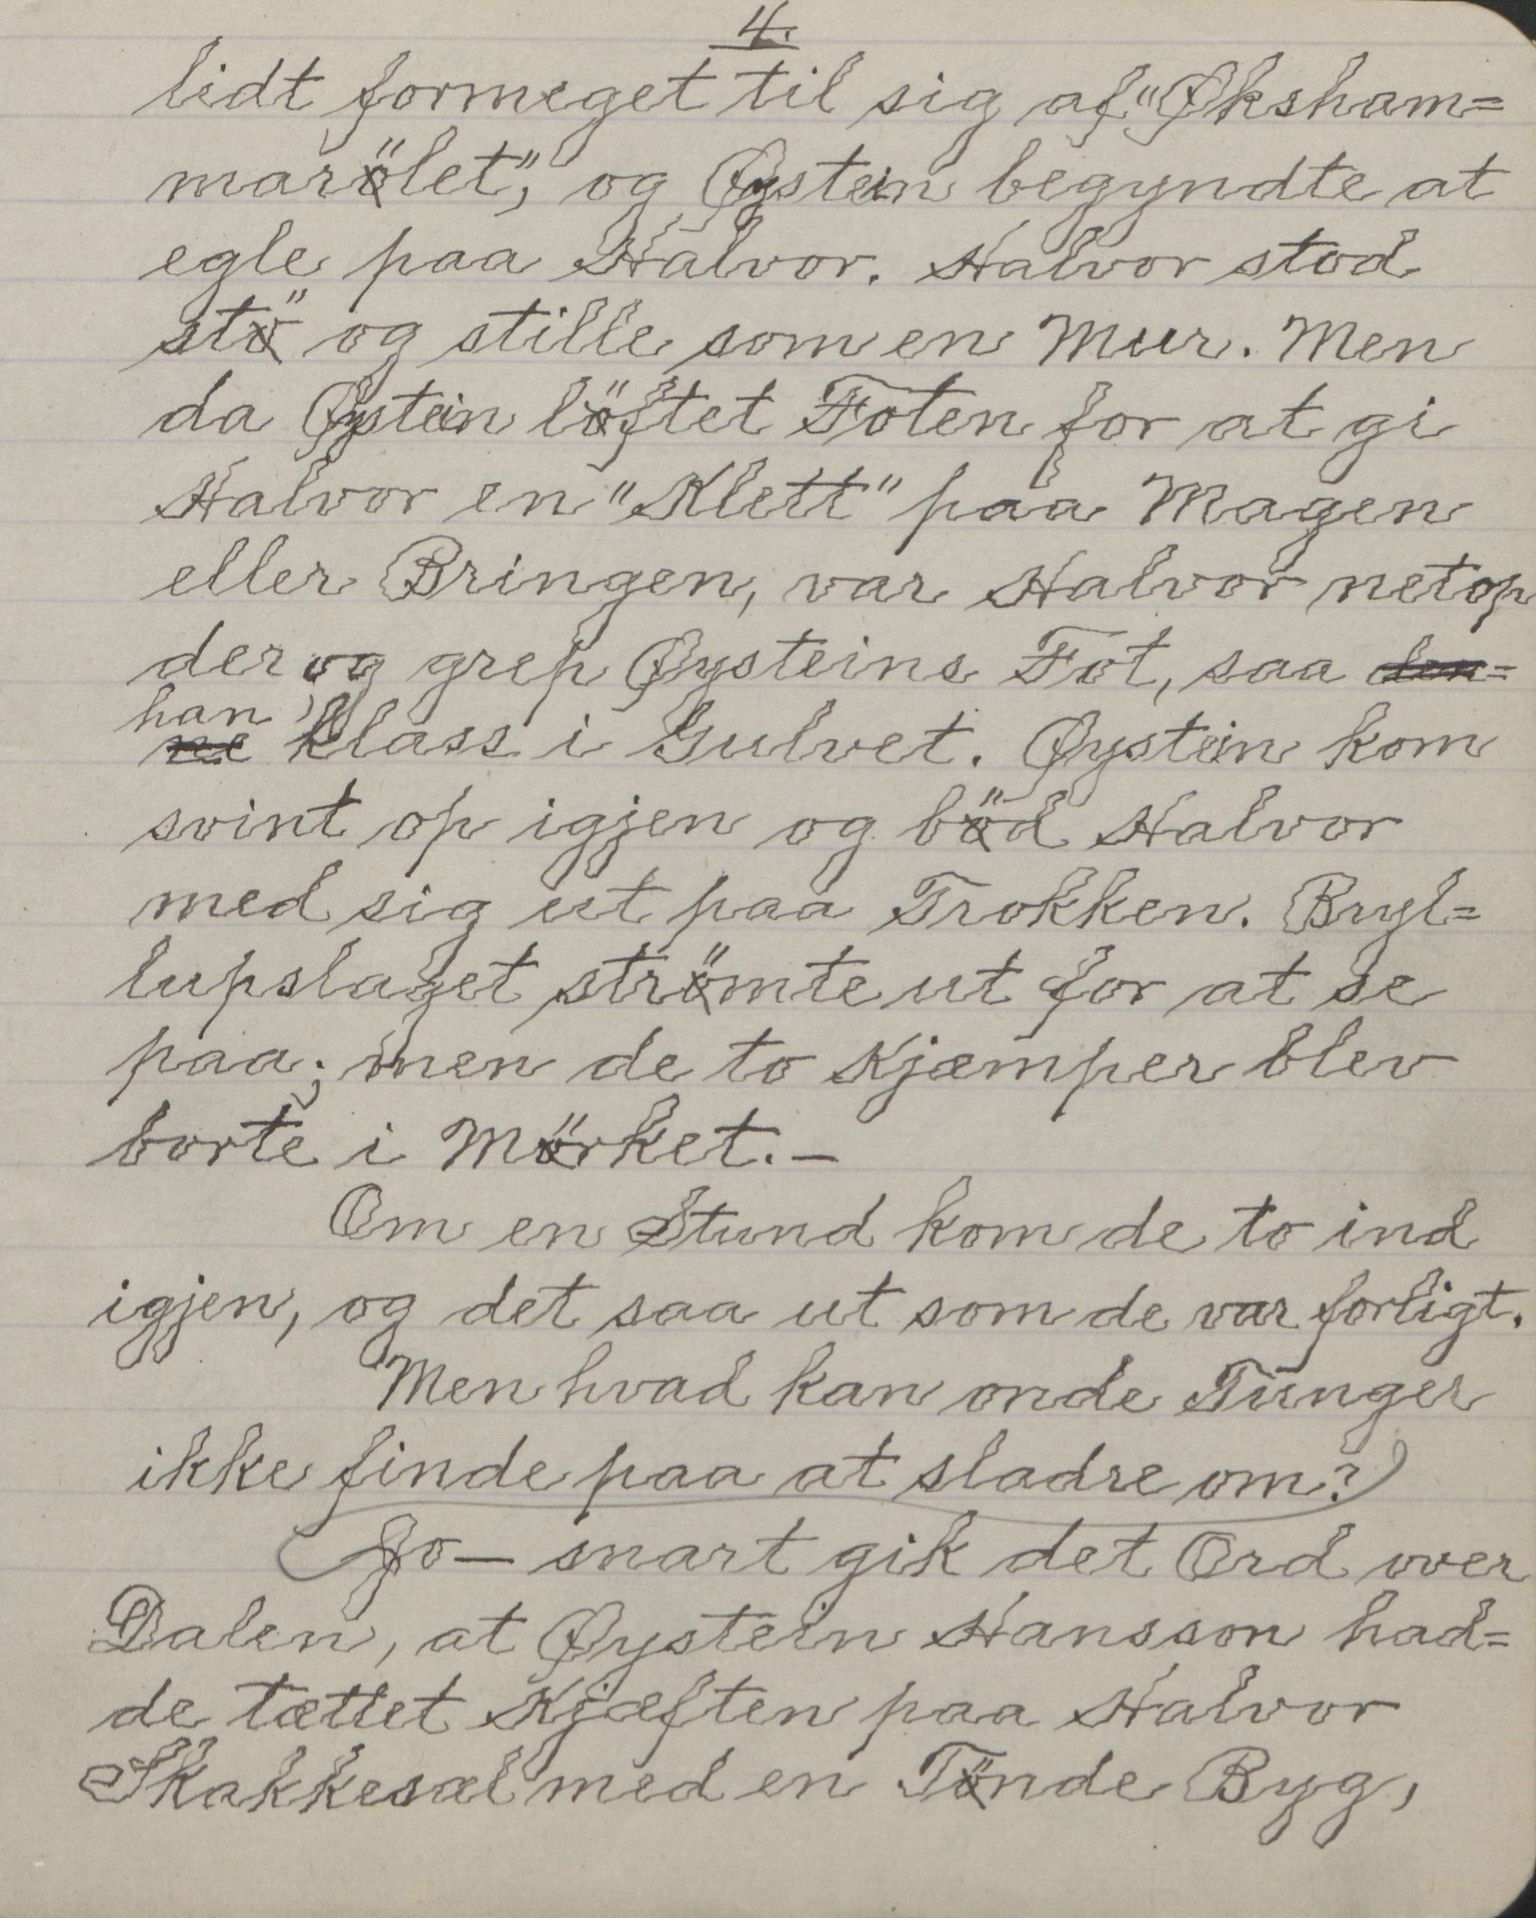 4.
lidt formeget til sig af "Øksham=
marölet", og Øystein begyndte at
egle paa Halvor. Halvor stod
stö og stille som en Mur. Men
da Øystein löftet Foten for at gi
Halvor en "Klett" paa Magen
eller Bringen, var Halvor netop
der og grep Øysteins Fot, saa den=
han
ne klass i Gulvet. Øystein kom
svint op igjen og böd Halvor
med sig ut paa Trokken. Bryl=
lupslaget strömte ut for at se
paa; men de to Kjæmper blev
borte i Mörket.—
Om en Stund kom de to ind
igjen, og det saa ut som de var forligt.
Men hvad kan onde Tunger
ikke finde paa at sladre om?
Jo— snart gik det Ord over
Dalen, at Øystein Hansson had=
de tættet Kjæften paa Halvor
Skakkesæl med en Tönde Byg,